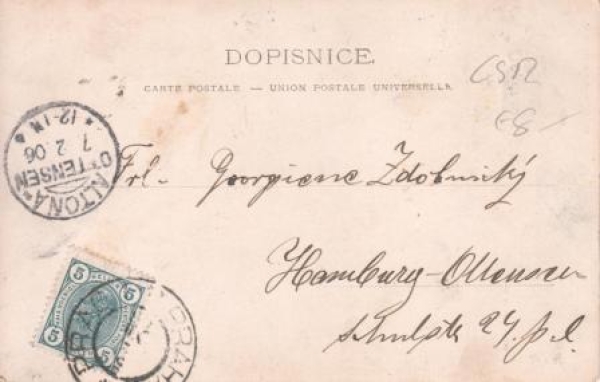 DOPISNICE
CARTE POSTALE. — UNION POSTALE UNIVERSELLE.
ČSR
€8-
ALTONA
OTTENSEN
7 2 06
* 12-1N *
Frl. Georgiene Zdobnický
Hamburg-Ottensen
24 p.l.
5 5
PRAHA